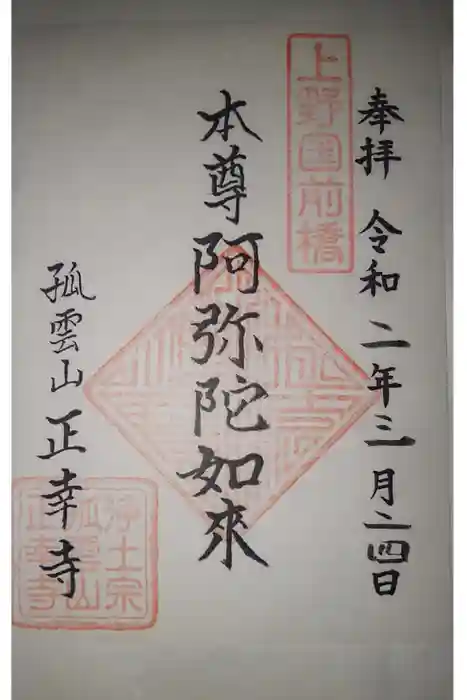 奉拝 令和二年三月二四日
上野国前橋
本尊阿弥陀如来
孤雲山正幸寺
浄土宗
孤雲山
正幸寺